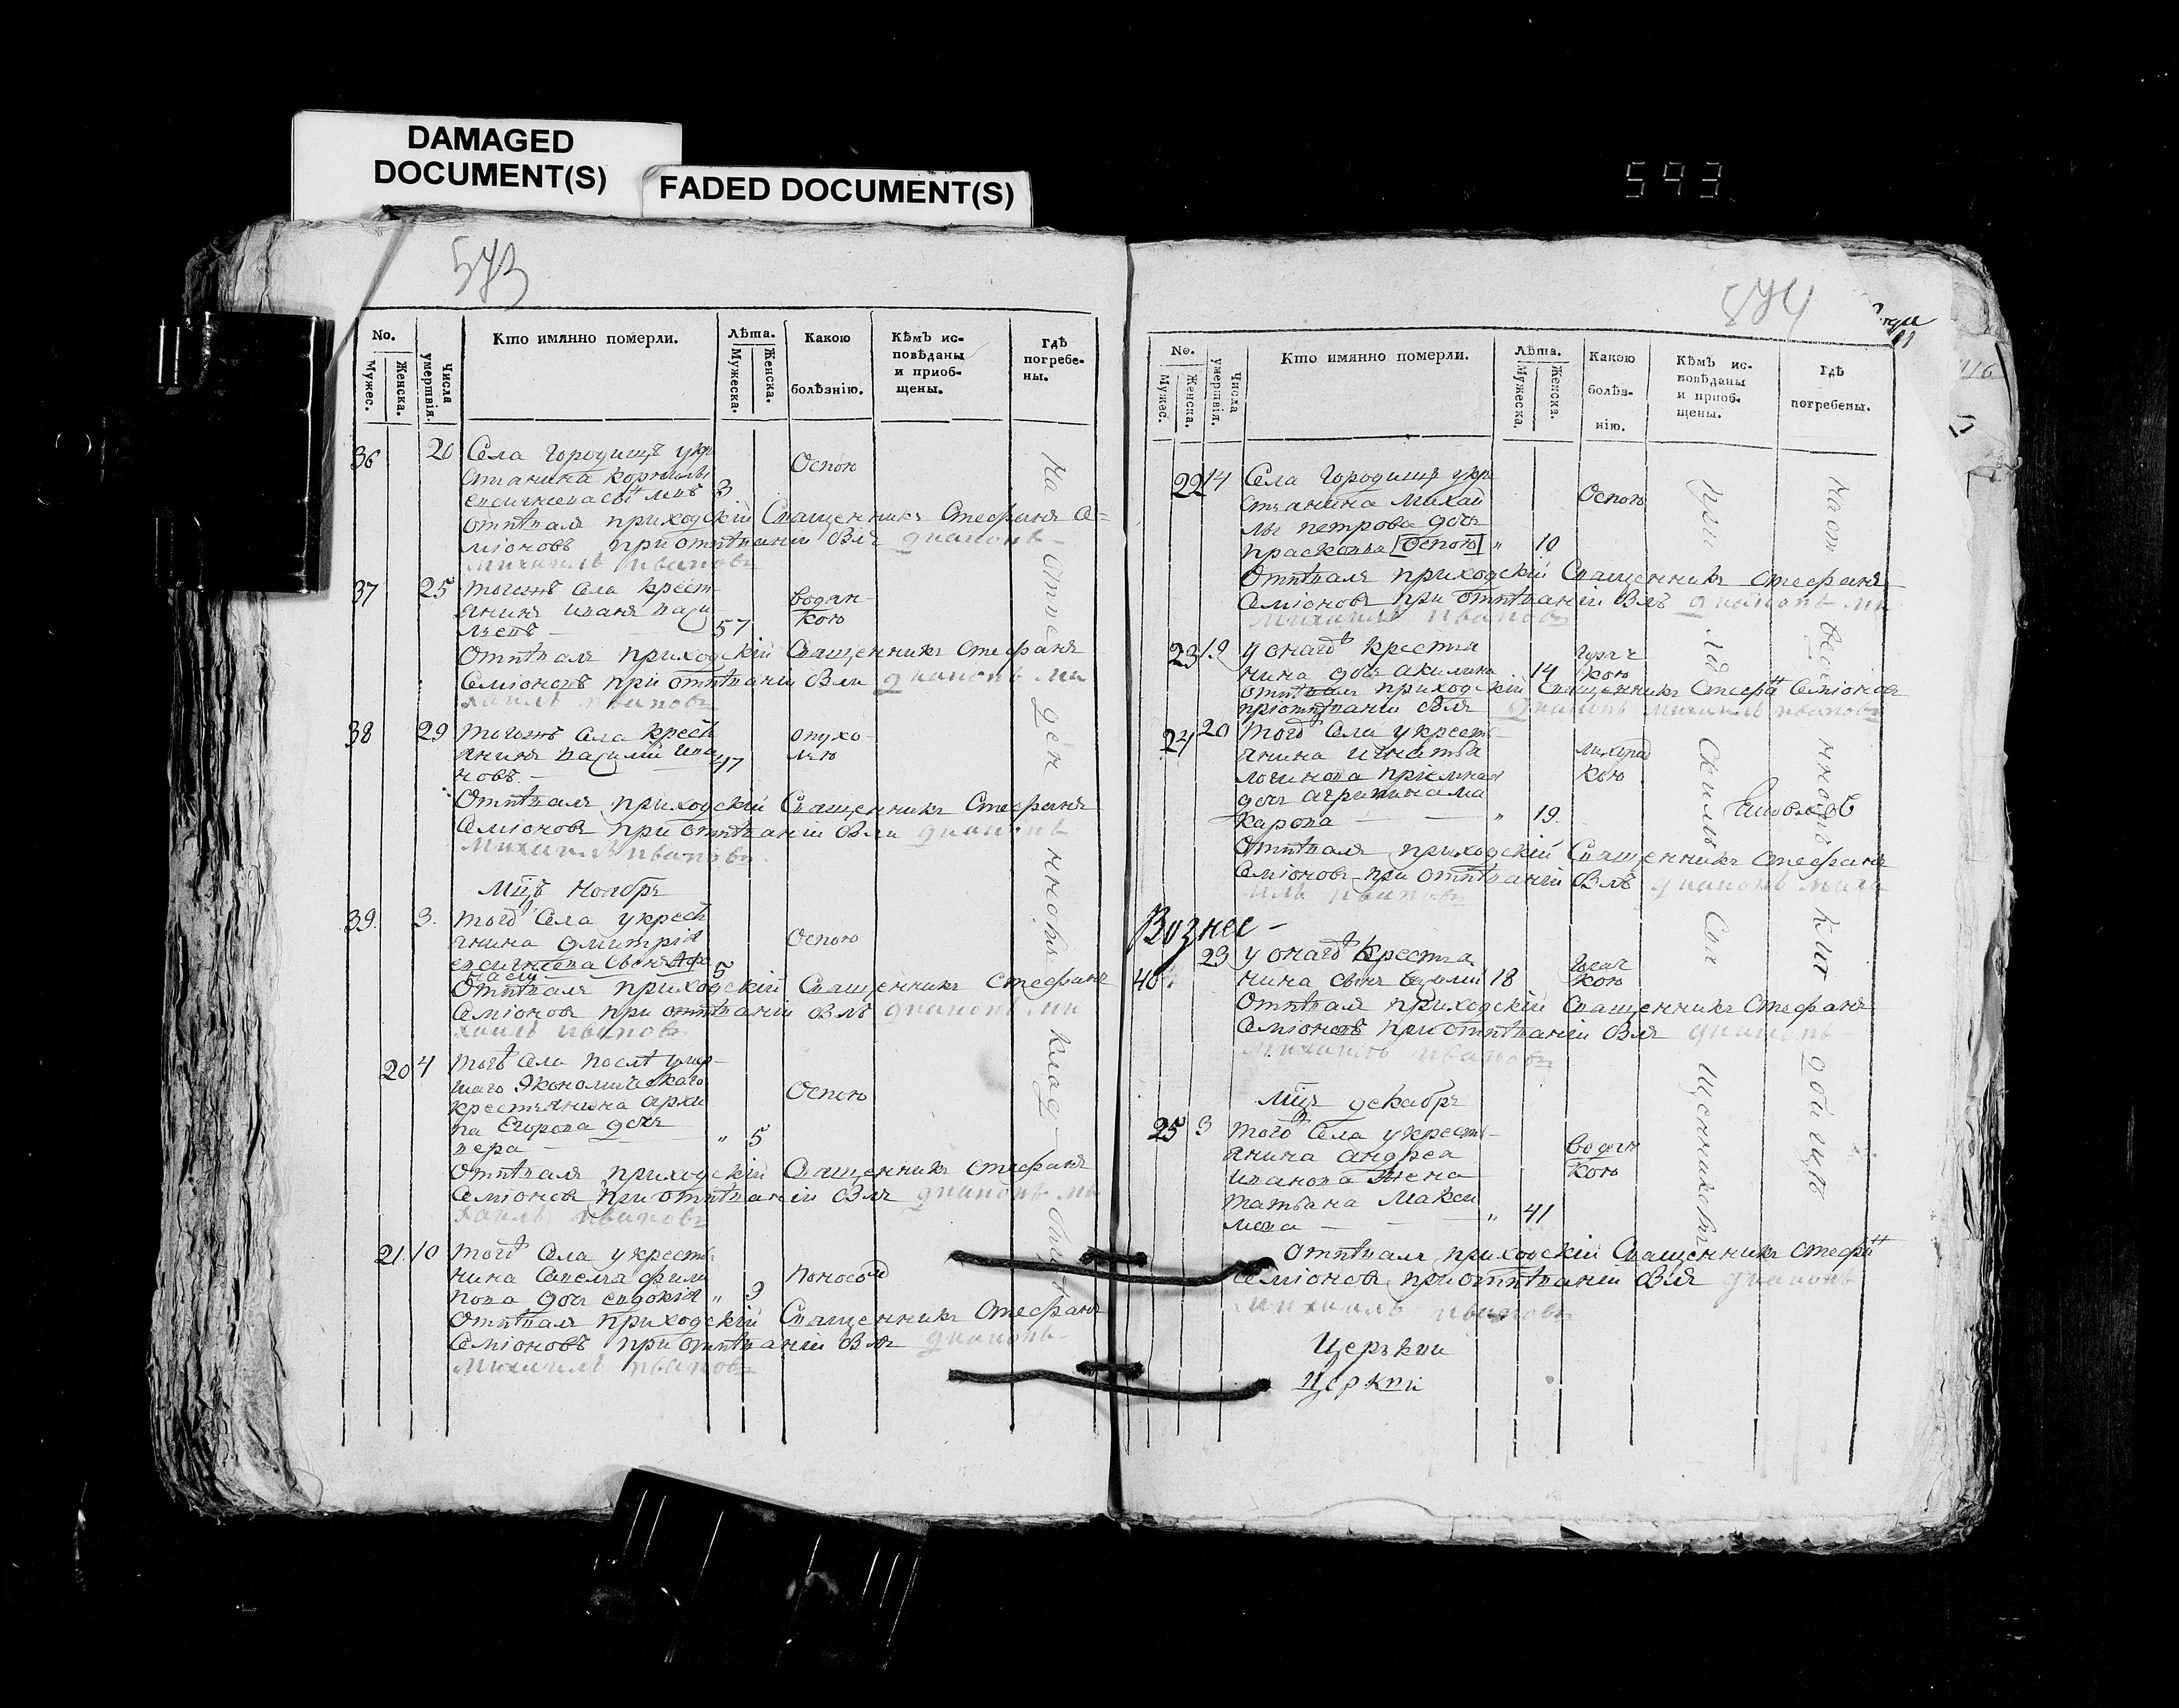 DAMAGED
DOCUMENT(S)
FADED DOCUMENT(S)
593
573
No.
Мужес.
Женска.
Числа умертвія.
Кто имянно померли.
Лѣта.
Мужеска.
Женска.
Какою
болѣзнію.
Кѣмъ ис-
повѣданы
и приоб-
щены.
Гдѣ
погребе-
ны.
36 20 Села Городищъ у кре
стянина Корнилы
3
Оспою
Отпѣвалъ приходскій Священникъ Стефанъ Се=
міоновъ при отпѣваніи былъ діаконъ
Михаилъ Ивановъ
37 25 Тогожъ Села крест
янинъ Иванъ Васи
льевъ 57
водян
кою
Отпѣвалъ приходскій Священникъ Стефанъ
Семіоновъ при отпѣваніи были діаконъ Ми
хаилъ Ивановъ
38 29 Тогожъ Села крест
янинъ Василій Ива
новъ 47
опухо
лью
Отпѣвалъ приходскій Священникъ Стефанъ
Семіоновъ при отпѣваніи были діаконъ
Михаилъ Ивановъ
Мцъ Ноябрь
39 3. Того Села у крест
янина Дмитрія
5
Оспою
Отпѣвалъ приходскій Священникъ Стефанъ
Семіоновъ при отпѣваніи былъ діаконъ Ми
хаилъ Ивановъ
20 4 Того Села послѣ умер
шаго Экономическаго
крестьянина Архи
па Егорова дочь
вера " 5
Оспою
Отпѣвалъ приходскій Священникъ Стефанъ
Семіоновъ при отпѣваніи былъ діаконъ Ми
хаилъ Ивановъ
21. 10 Того Села у кресть
янина Савелья Фили
пова дочь Евдокія " 9
Поносомъ
Отпѣвалъ приходскій Священникъ Стефанъ
Семіоновъ при отпѣваніи былъ діаконъ
Михаилъ Ивановъ
574
No.
Мужес.
Женска.
Числа умертвія.
Кто имянно померли.
Лѣта.
Мужеска.
Женска.
Какою
болѣз-
нію.
Кѣмъ ис-
повѣданы
и приоб-
щены.
Гдѣ
погребены.
22 14 Села Городищъ у кре
стьянина Михай
лы Петрова дочь
Прасковья [Оспою] " 10
Оспою
Отпѣвалъ приходскій Священникъ Стефанъ
Семіоновъ при отпѣваніи былъ діаконъ Ми
Михаилъ Ивановъ
23 19 у онаго крестья
нина дочь Акилина 14
горяч
кою
Отпѣвалъ приходскій Священникъ Стефанъ Семіоновъ
при отпѣваніи былъ діаконъ Михаилъ Ивановъ
24 20 Того Села у крест
янина Игнатья
Логинова пріемная
дочь Агрипина Ма
карова " 19
лихорад
кою
Отпѣвалъ приходскій Священникъ Стефанъ
Семіоновъ при отпѣваніи былъ діаконъ Миха
илъ Ивановъ
Вознес
40 23 у онаго Крестья
нина сынъ Василій 18
горяч
кою
Отпѣвалъ приходскій Священникъ Стефанъ
Семіоновъ при отпѣваніи былъ діаконъ
Михаилъ Ивановъ
Мцъ Декабрь
25 3 Того Села у кресть
янина Андрея
Иванова жена
Татьяна Макси
мова " 41
водян
кою
Отпѣвалъ приходскій Священникъ Стефанъ
Семіоновъ при отпѣваніи былъ діаконъ
Михаилъ Ивановъ
Церкви
Церкви